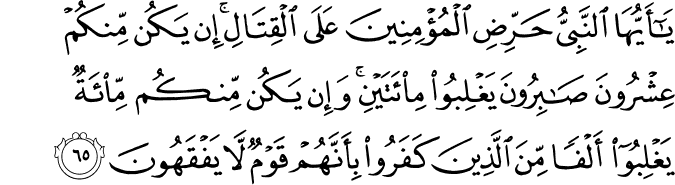 يَـٰٓأَيُّهَا ٱلنَّبِىُّ حَرِّضِ ٱلْمُؤْمِنِينَ عَلَى ٱلْقِتَالِ ۚ إِن يَكُن مِّنكُمْ
عِشْرُونَ صَـٰبِرُونَ يَغْلِبُوا۟ مِا۟ئَتَيْنِ ۚ وَإِن يَكُن مِّنكُم مِّا۟ئَةٌ
يَغْلِبُوٓا۟ أَلْفًا مِّنَ ٱلَّذِينَ كَفَرُوا۟ بِأَنَّهُمْ قَوْمٌ لَّا يَفْقَهُونَ ٦٥